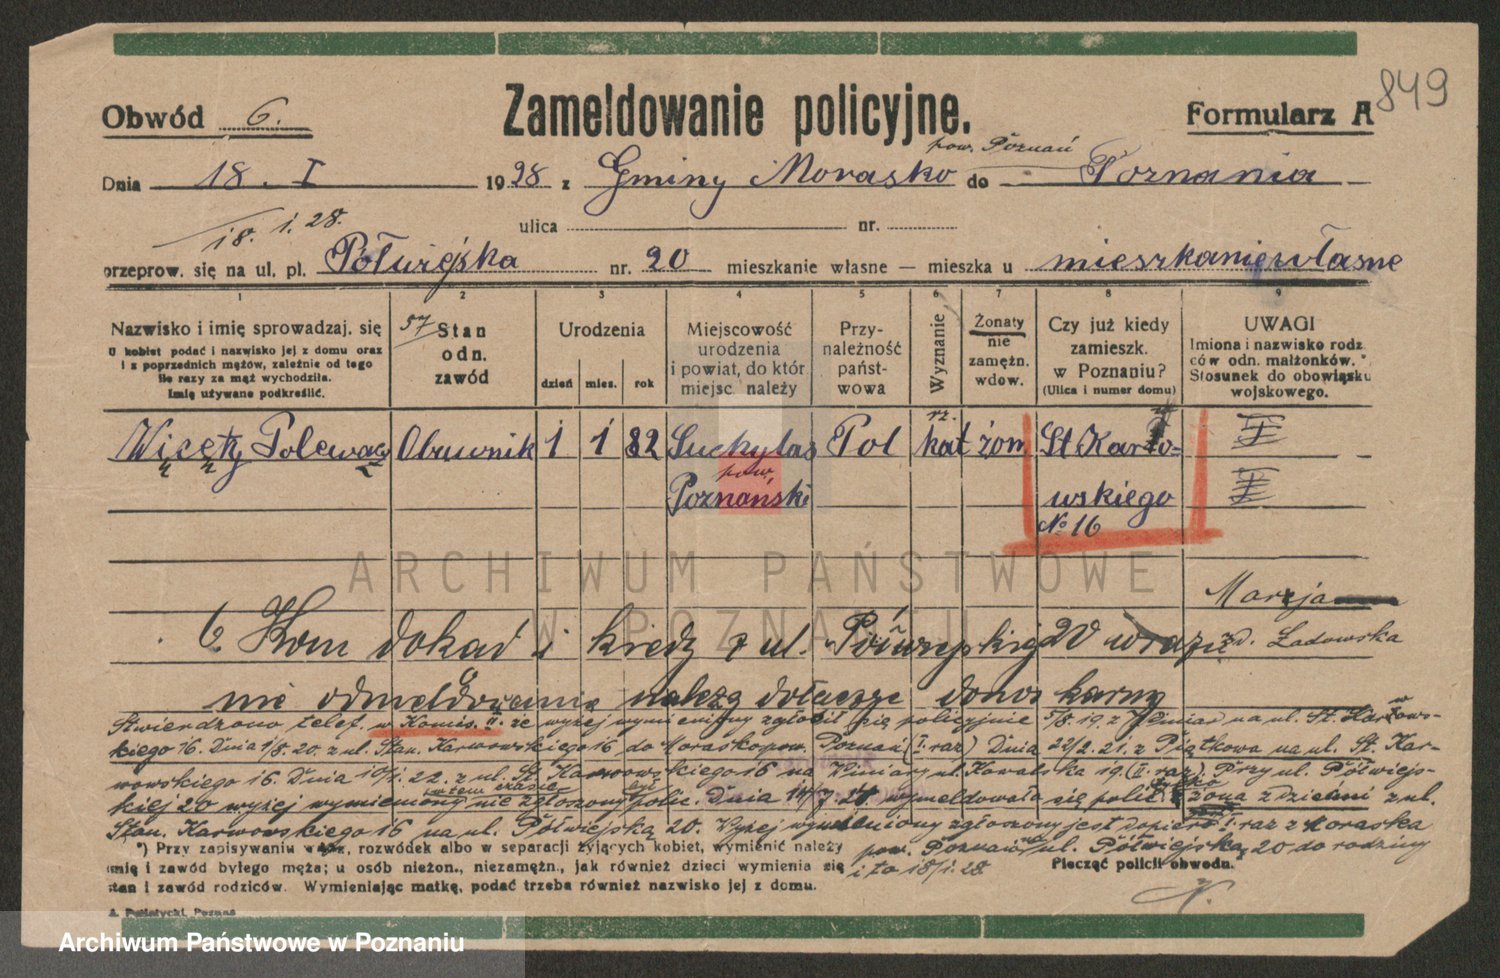 849
Obwód 6. Zameldowanie policyjne. Formularz A
pow. Poznań
Dnia 18. I 1928 z Gminy Morasko do Poznania
18. 1. 28. ulica nr.
przeprow. się na ul. pl. Półwiejska nr. 20 mieszkanie własne — mieszka u mieszkanie własne
1 2 3 4 5 6 7 8 9
Nazwisko i imię sprowadzaj. się
U kobiet podać i nazwisko jej z domu oraz
i z poprzednich mężów, zależnie od tego
ile razy za mąż wychodziła.
Imię używane podkreślić.
57 Stan
odn.
zawód
Urodzenia
dzień mies. rok
Miejscowość
urodzenia
i powiat, do któr.
miejsc. należy
Przy-
należność
państ-
wowa
Wyznanie
Żonaty
nie
zamężn.
wdow.
Czy już kiedy
zamieszk.
w Poznaniu?
(Ulica i numer domu)
UWAGI
Imiona i nazwisko rodz.
ców odn. małżonków. *
Stosunek do obowiązku
wojskowego.
Polewacz Obuwnik 1 1 82 Suchylas Pol rz. kat żon. St. Karwo-
pow.
Poznański wskiego
№ 16
Marja
zd. Ładowska
6 Kom dokąd i kiedy z ul. Półwiejskiej 20 w razie
nie odmeldowania należy dołączyć donos karny
Stwierdzono telef. w Komis. II. że wyżej wymieniony zgłosił się policyjnie 5/8. 19. z Winiar na ul. St. Karwows-
kiego 16. Dnia 1/8. 20. z ul. Stan. Karwowskiego 16 do Moraska pow. Poznań (I. raz) Dnia 22/2. 21. z Piątkowa na ul. St. Kar-
wowskiego 16. Dnia 19/1. 22. z ul. St. Karwowskiego 16 na Winiary ul. Kowalska 19. (II. raz). Przy ul. Półwiejs-
kiej 20 wyżej wymieniony w tem czasie nie zgłoszony był polic. Dnia 24. wymeldowała się polic. żona z dziećmi z ul.
Stan. Karwowskiego 16 na ul. Półwiejską 20. Wyżej wymieniony zgłoszony jest dopiero I. raz z Moraska
pow. Poznań na ul. Półwiejską 20 do rodziny
i to 18/1. 28
*) Przy zapisywaniu wdów, rozwódek albo w separacji żyjących kobiet, wymienić należy
imię i zawód byłego męża; u osób nieżon., niezamężn., jak również dzieci wymienia się
stan i zawód rodziców. Wymieniając matkę, podać trzeba również nazwisko jej z domu.
Pieczęć policji obwodu.
A. Pulłatycki, Poznań
ARCHIWUM PAŃSTWOWE
W POZNANIU
Archiwum Państwowe w Poznaniu